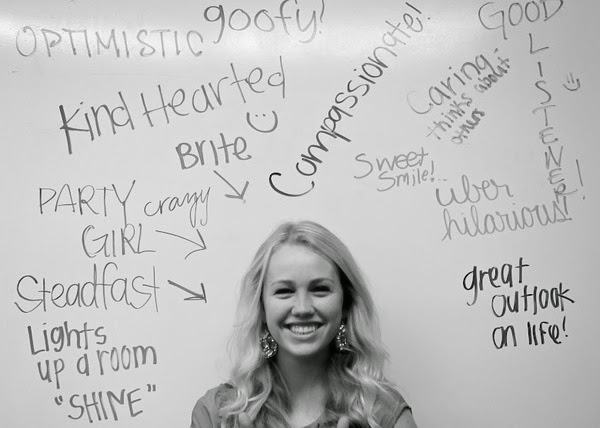 OPTIMISTIC
goofy!
Kind Hearted
BRITE
Compassionate!
GOOD
LISTENER!
Caring-
thinks about
others
Sweet
Smile!..
uber
hilarious!
PARTY crazy
GIRL
Steadfast
Lights
up a room
"SHINE"
great
outlook
on life!